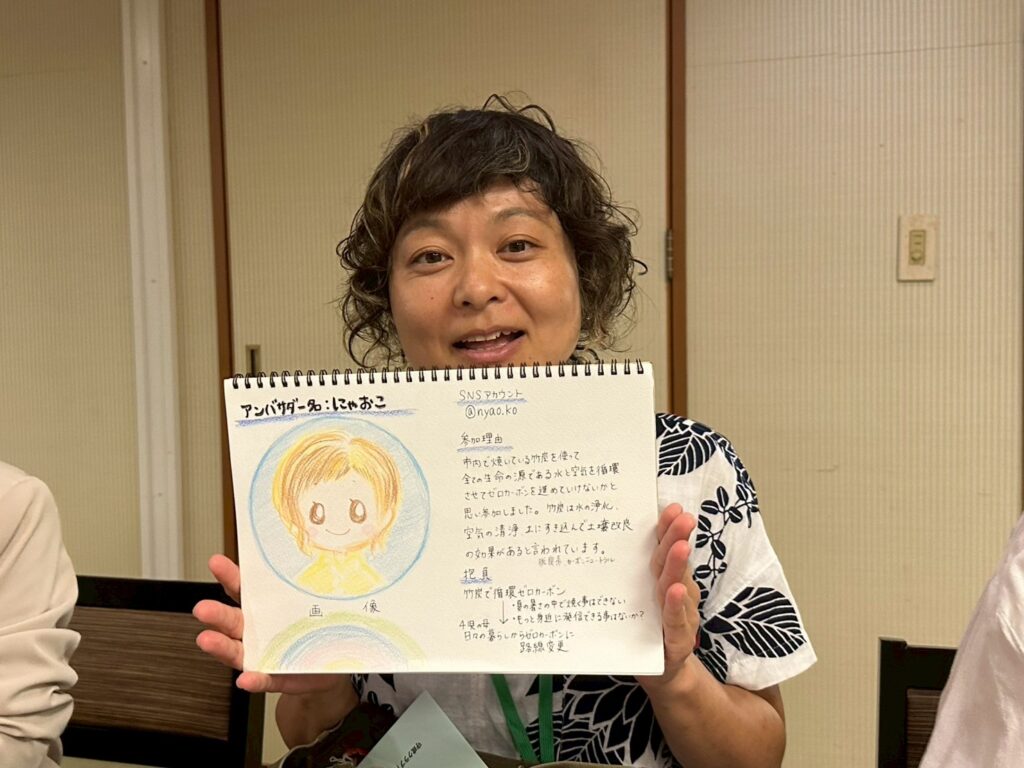 アンバサダー名:にゃおこ
画 像
SNSアカウント
@nyao.ko
参加理由
市内で焼いている竹炭を使って
全ての生命の源である水と空気を循環
させてゼロカーボンを進めていけないかと
思い参加しました。竹炭は水の浄化、
空気の清浄 土にすき込んで土壌改良
の効果があると言われています。
カーボンニュートラル
抱負
竹炭で循環ゼロカーボン
・夏の暑さの中で焼く事はできない
・もっと身近に発信できる事はないか?
4児の母
日々の暮らしからゼロカーボンに
路線変更